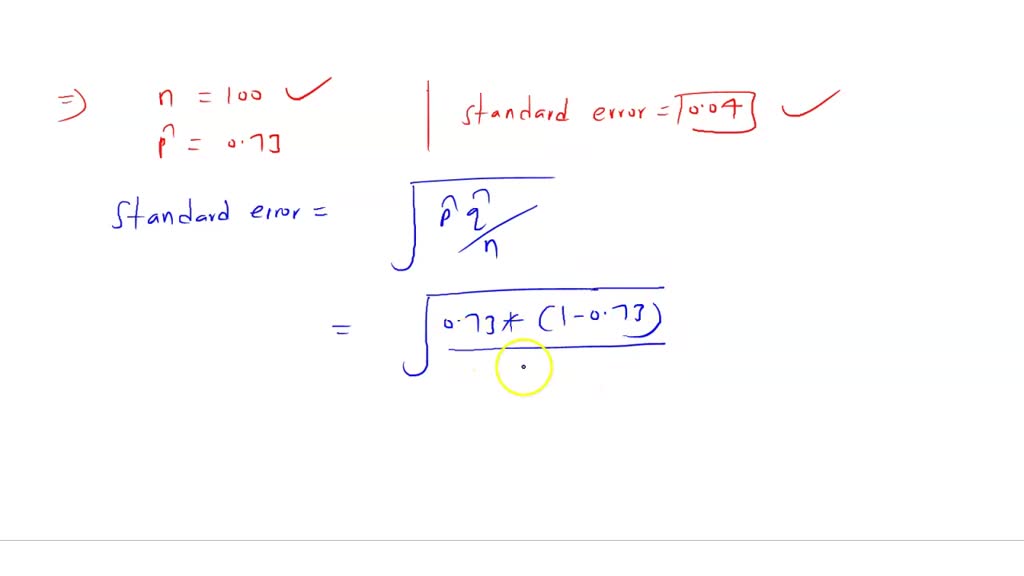 ⇒ n = 100 ✓
p̂ = 0.73
standard error = 0.04 ✓
Standard error = √(p̂ q̂/n)
= √(0.73 * (1-0.73)